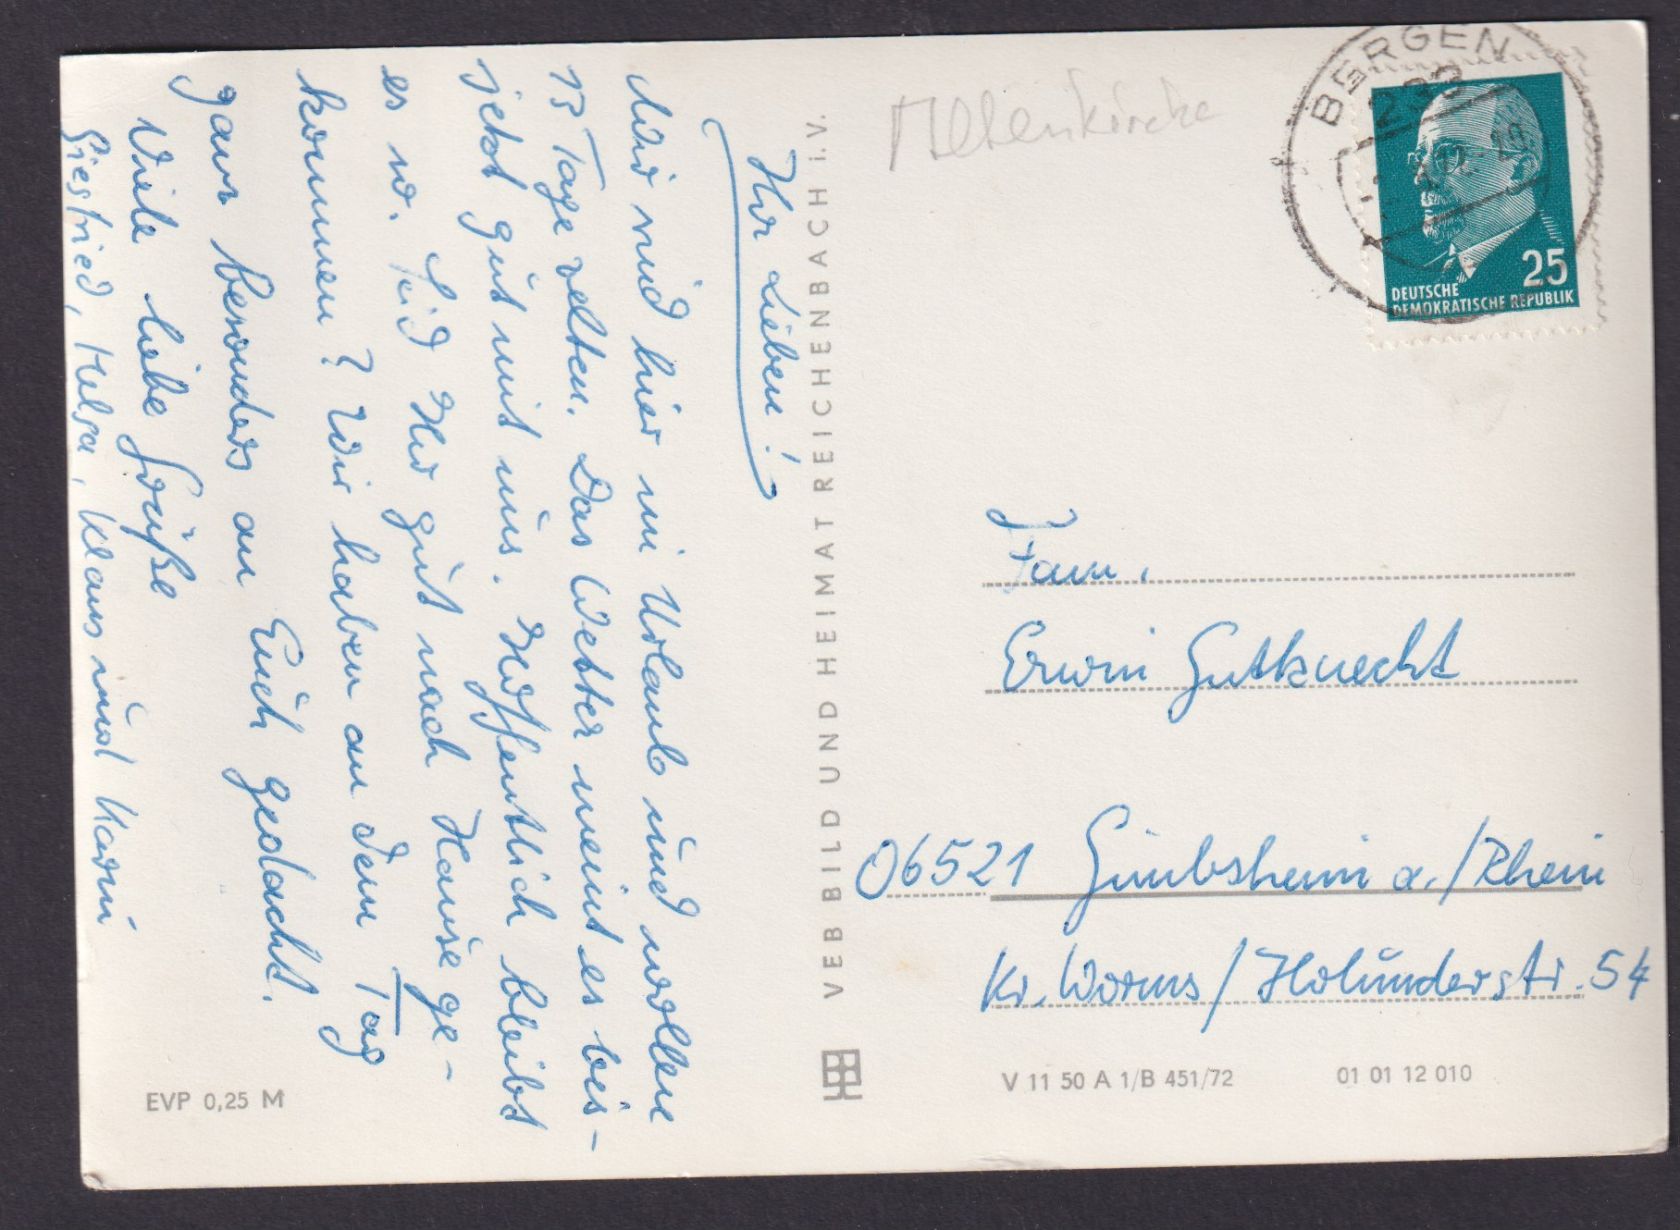 Ihr Lieben!
Wir sind hier in Urlaub und wollen
13 Tage zelten. Das Wetter meint es bis-
jetzt gut mit uns. Hoffentlich bleibt
es so. Seid Ihr gut nach Hause ge-
kommen? Wir haben an dem Tag
ganz besonders an Euch gedacht.
Viele liebe Grüße
Siegfried, Helga, Klaus und Karin
EVP 0,25 M
VEB BILD UND HEIMAT REICHENBACH I.V.
Altenkirche
BERGEN
25
DEUTSCHE
DEMOKRATISCHE REPUBLIK
Fam.
Erwin Gutknecht
06521 Gimbsheim a./Rhein
Kr. Worms/Holunderstr. 54
V 11 50 A 1/B 451/72
01 01 12 010